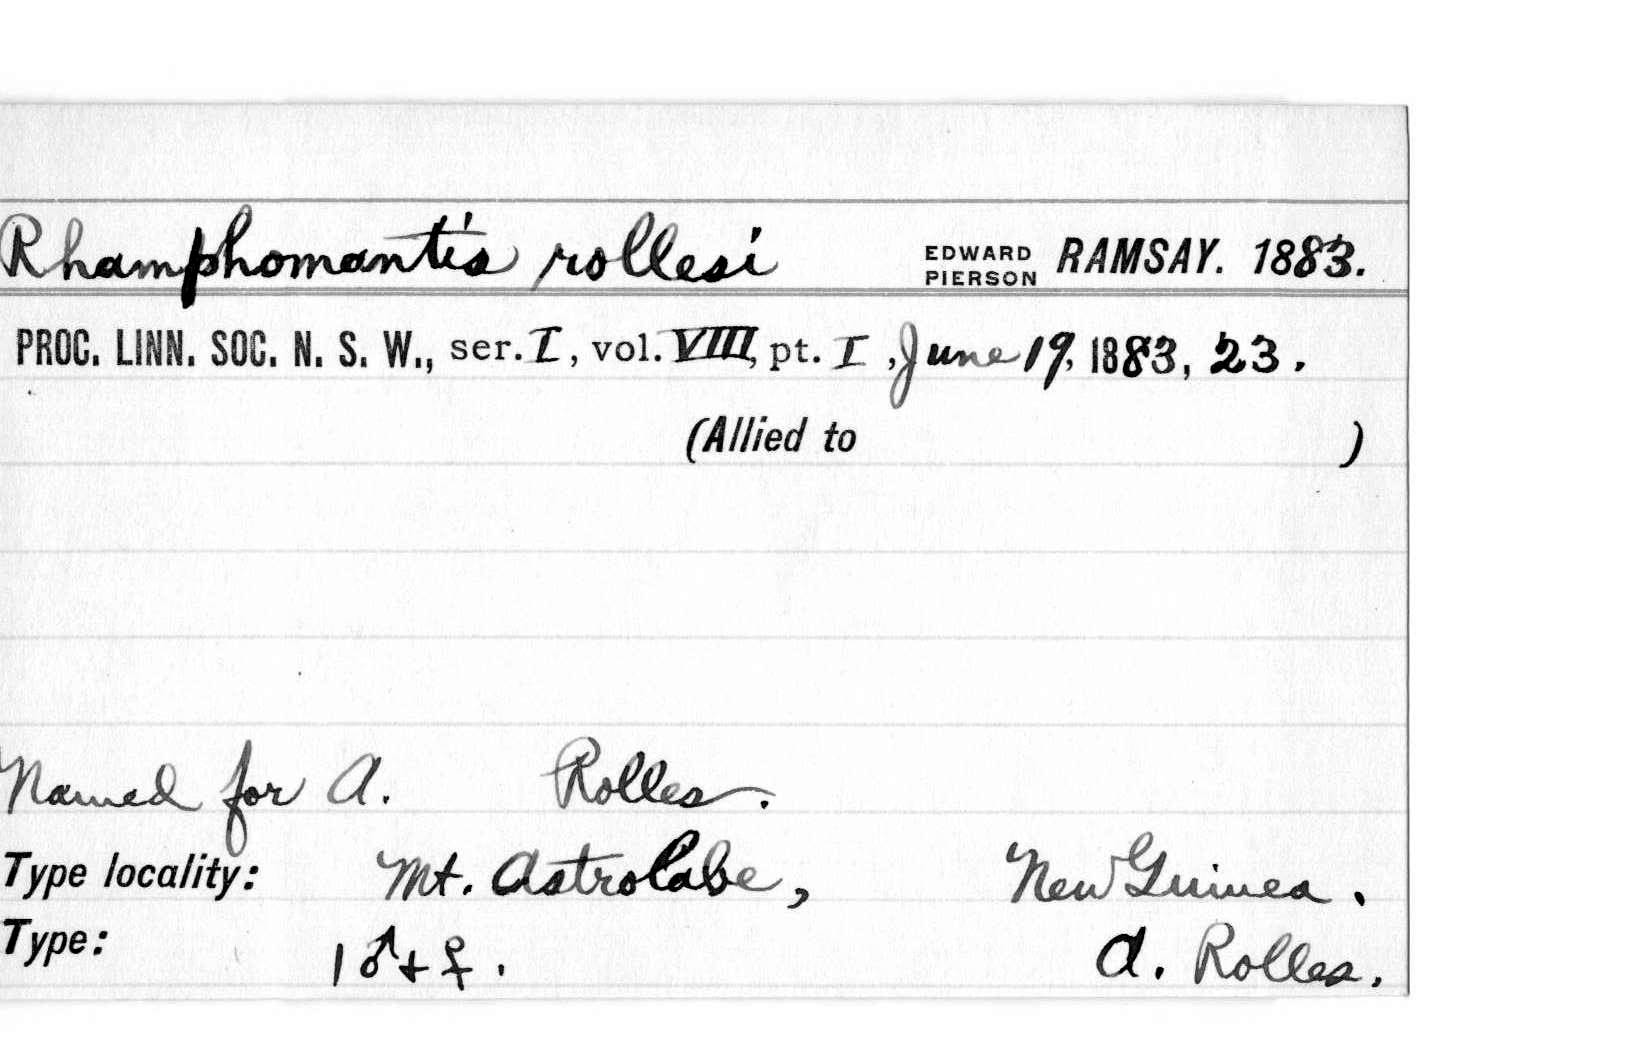 Rhamphomantis rollesi EDWARD PIERSON RAMSAY. 1883.
PROC. LINN. SOC. N. S. W., ser. I, vol. VIII, pt. I, June 19, 1883, 23.
(Allied to )
Named for A. Rolles.
Type locality: Mt. Astrolabe, New Guinea.
Type: 1 ♂ + ♀. A. Rolles.